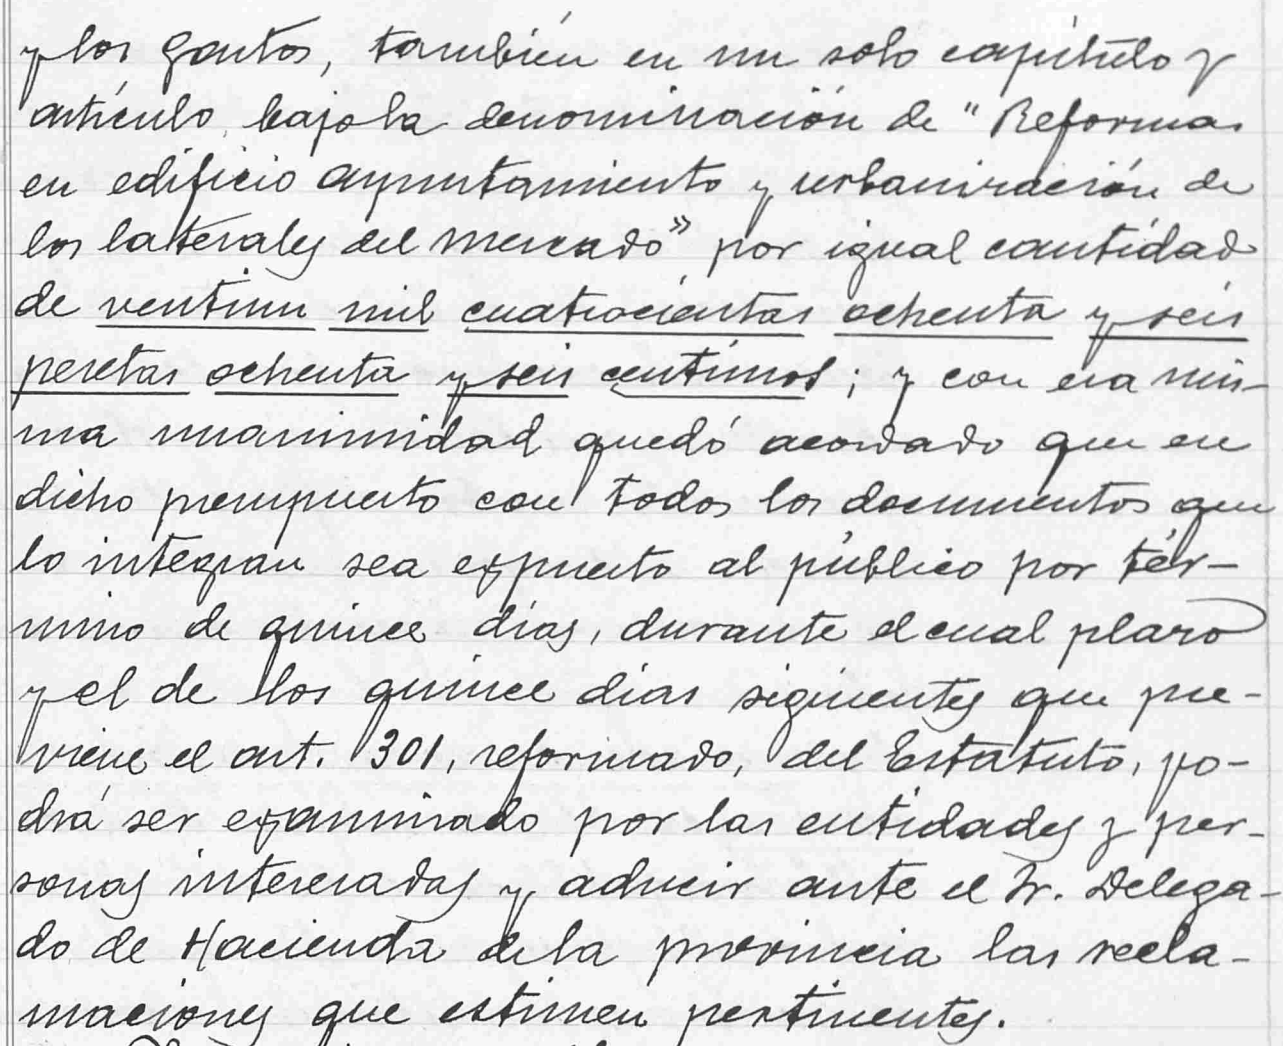 y los gastos, también en un solo capítulo y
artículo, bajo la denominación de "Reformas
en edificio ayuntamiento y urbanización de
los laterales del mercado" por igual cantidad
de ventiun mil cuatrocientas ochenta y seis
pesetas ochenta y seis centimos; y con esa mis-
ma unanimidad quedó acordado que en
dicho presupuesto con todos los documentos que
lo integran sea expuesto al público por tér-
mino de quince días, durante el cual plazo
y el de los quince días siguientes que pre-
viene el art. 301, reformado, del Estatuto, po-
drá ser examinado por las entidades y per-
sonas interesadas y aducir ante el Sr. Delega-
do de Hacienda de la provincia las recla-
maciones que estimen pertinentes.